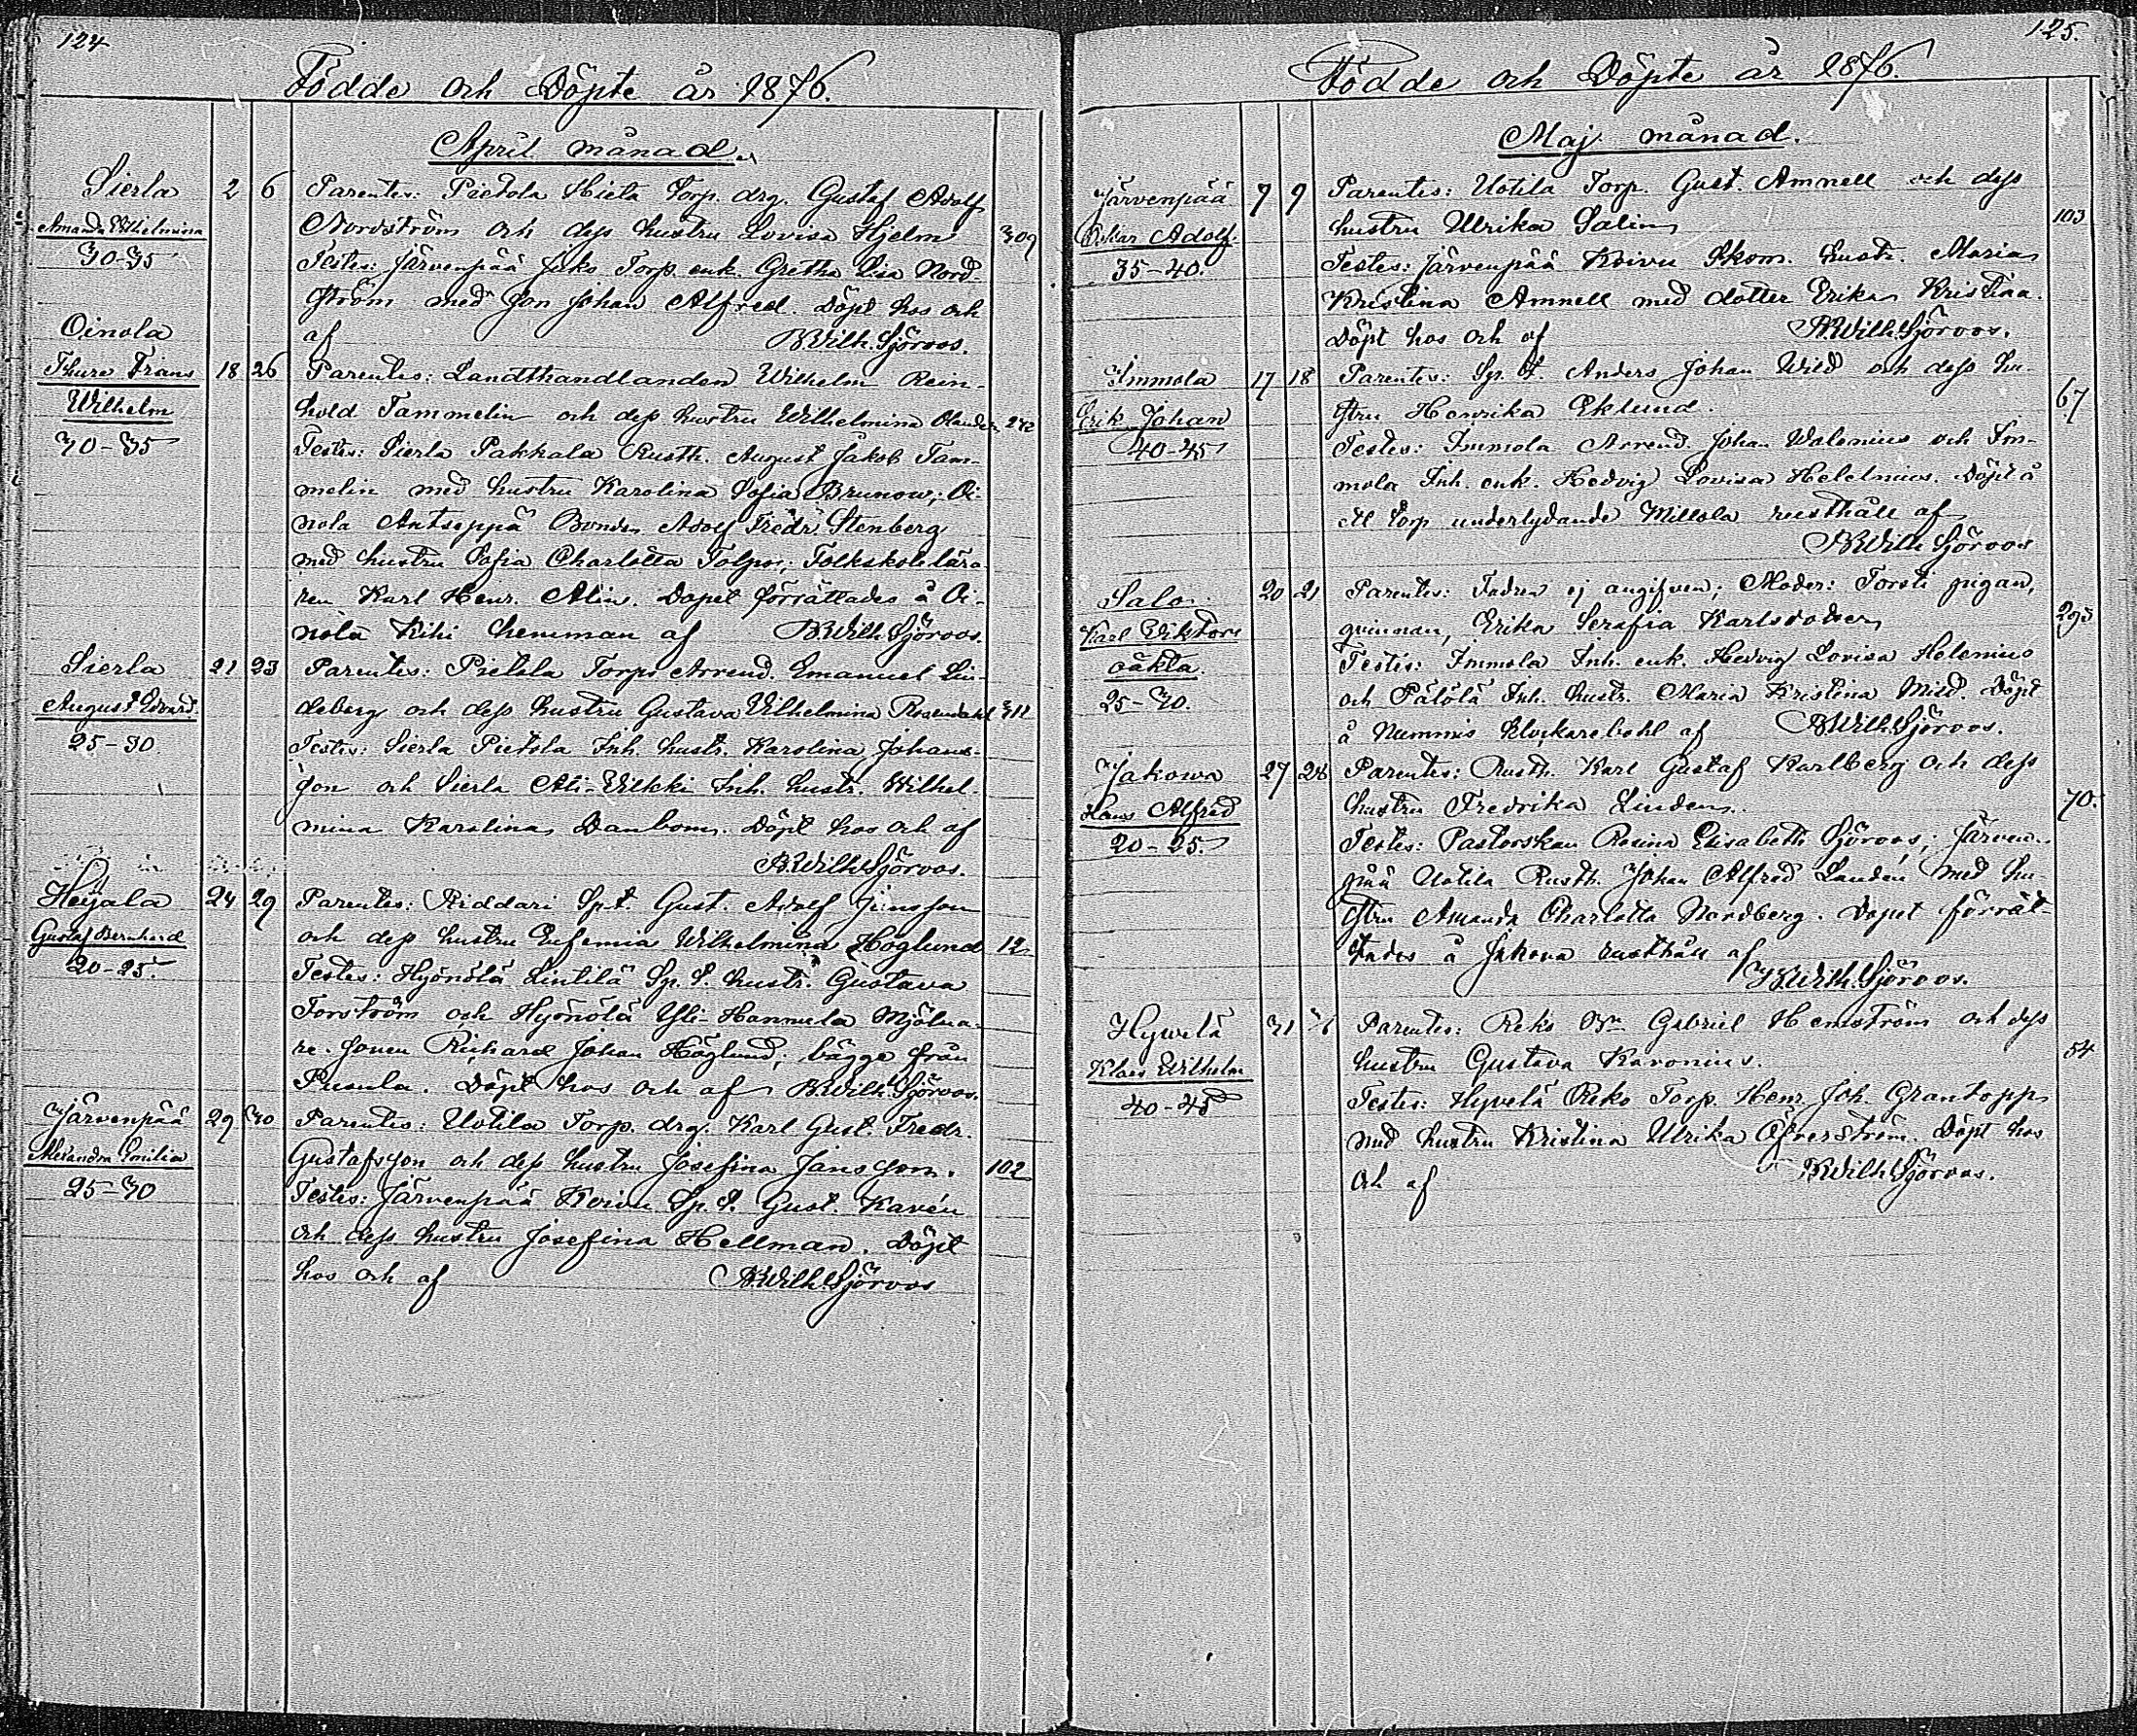 124
Födde och Döpte år 1876.
April månad.
Sierla 2 6 Parentes: Pietola Hieta Torp. drg. Gustaf Adolf
Amanda Wilhelmina Nordström och dess hustru Lovisa Hjelm 309
30-35 Testes: Järvenpää Torp. enk. Gretha Lisa Nord-
ström med son Johan Alfred. Döpt hos och
Oinola af B.Wilh.Sjöroos.
Thure Frans 18 26 Parentes: Landthandlanden Wilhelm Rein-
Wilhelm hold Tammelin och dess hustru Wilhelmina 272
30-35 Testes: Sierla Pakkala Rusth. August Jakob Tam-
melin med hustru Karolina Sofia Brunow; Oi-
nola Antseppä Bonden Adolf Fredr. Stenberg
med hustru Sofia Charlotta Tolpo; Folkskolelära-
ren Karl Henr. Alin. Dopet förrättades å Oi-
nola Kihi hemman af B.Wilh.Sjöroos.
Sierla 21 23 Parentes: Pietola Torps Arrend. Emanuel Lin-
August Edvard deberg och dess hustru Gustava Wilhelmina Rosendahl 311
25-30. Testes: Sierla Pietola Inh. hustr. Karolina Johans-
son och Sierla Ali-Erkki Inh. hustr. Wilhel-
mina Karolina Danbom. Döpt hos och af
B.Wilh.Sjöroos.
Heijala 24 29 Parentes: Riddari Sp.t. Gust. Adolf Jinsson
Gustaf Bernhard och dess hustru Eufemia Wilhelmina Höglund 12
20-25. Testes: Hyönölä Lintilä Sp.t. hustr. Gustava
Forström och Hyönölä Yli-Hannula Mjölna-
re-sonen Richard Johan Höglund; bägge från
Pusula. Döpt hos och af B.Wilh.Sjöroos.
Järvenpää 29 30 Parentes: Uotila Torp. drg. Karl Gust. Fredr.
Alexandra Emilia Gustafsson och dess hustru Josefina Jansson. 102
25-30 Testes: Järvenpää Koivu Sp.t. Gust. Kavén
och dess hustru Josefina Hellman. Döpt
hos och af B.Wilh.Sjöroos
125.
Födde och Döpte år 1876.
Maj månad.
Järvenpää 7 9 Parentes: Uotila Torp. Gust. Amnell och dess
Oskar Adolf. hustru Ulrika Salin 103
35-40. Testes: Järvenpää Koivu Skom. hustr. Maria
Kristina Amnell med dotter Erika Kristina.
Döpt hos och af B.Wilh.Sjöroos.
Immola 17 18 Parentes: Sp.t. Anders Johan Wild och dess hu-
Erik Johan stru Henrika Eklund. 67
40-45 Testes: Immola Arrend. Johan Walenius och Im-
mola Inh. enk. Hedvig Lovisa Helelnius. Döpt å
ett torp underlydande Millola rusthåll af
B.Wilh.Sjöroos
Salo 20 21 Parentes: Fadren ej angifven; Moder: Torsti pigan,
Karl Wiktor qvinnan, Erika Serafia Karlsdotter 295
oäkta. Testes: Immola Inh. enk. Hedvig Lovisa Helenius
25-30. och Pälölä Inh. hustr. Maria Kristina Mild. Döpt
å Nummis Klockarebohl af B.Wilh.Sjöroos.
Jakowa 27 28 Parentes: Rusth. Karl Gustaf Karlberg och dess
Hans Alfred hustru Fredrika Linden. 70.
20-25. Testes: Pastorskan Rosina Elisabeth Sjöroos; Järven-
pää Uotila Rusth. Johan Alfred Landén med hu-
stru Amanda Charlotta Nordberg. Dopet förrät-
tades å Jakova rusthåll af
B.Wilh.Sjöroos.
Hyvelä 31 Parentes: Reko Gabriel Hemström och dess
Klaes Wilhelm hustru Gustava Karonius. 54
40-45 Testes: Hyvelä Reko Torp. Henr. Joh. Grantopp
med hustru Kristina Ulrika Öfverström. Döpt hos
och af B.Wilh.Sjöroos.